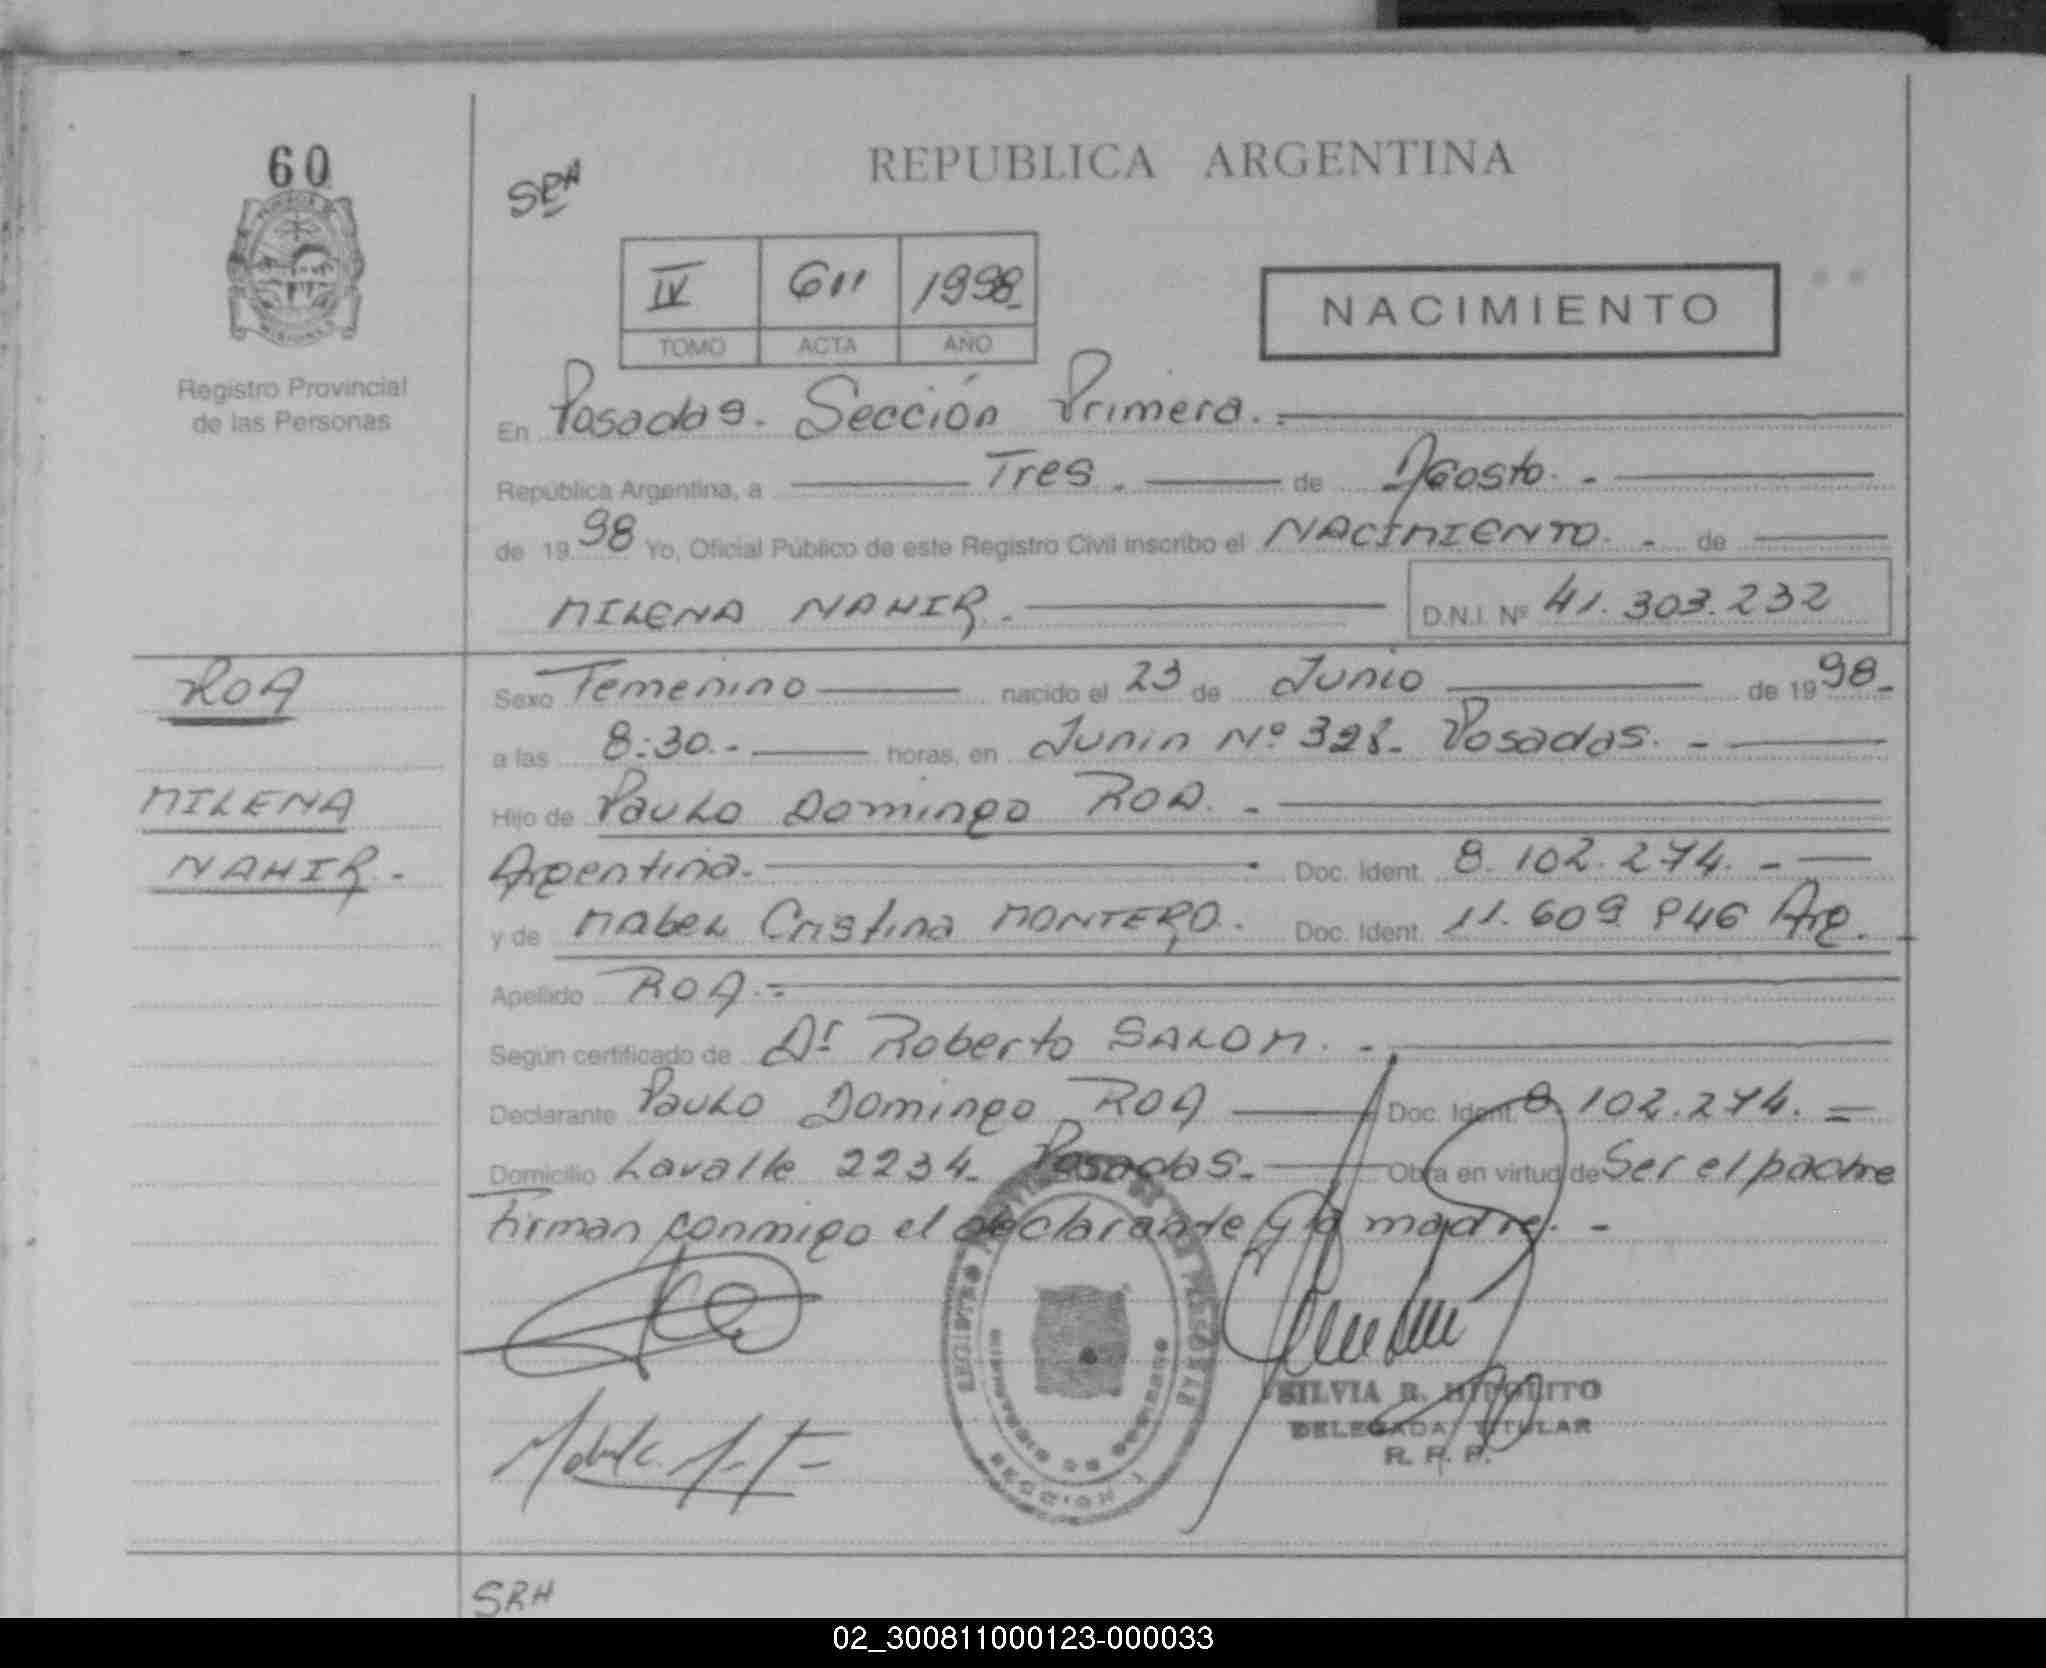 60
SRH
REPUBLICA ARGENTINA
IV 611 1998.
TOMO ACTA AÑO
NACIMIENTO
Registro Provincial
de las Personas
En Posadas. Sección Primera.
República Argentina, a Tres. de Agosto.
de 19 98 Yo, Oficial Público de este Registro Civil inscribo el NACIMIENTO. de
MILENA NAHIR. D.N.I. Nº 41.303.232
ROA
Sexo Femenino nacido el 23 de Junio de 19 98.
a las 8:30. horas, en Junin Nº 328. Posadas.
MILENA
Hijo de Paulo Domingo ROA.
NAHIR.
Argentina. Doc. Ident. 8.102.274.
y de Mabel Cristina MONTERO. Doc. Ident. 11.609.946 Arg.
Apellido ROA.
Según certificado de Dr Roberto SALOM.
Declarante Paulo Domingo ROA Doc. Ident. 8.102.274.
Domicilio Lavalle 2234. Posadas. Obra en virtud de Ser el padre
Firman conmigo el declarante y la madre.
SILVIA R. HIPOLITO
DELEGADA TITULAR
R. P. P.
SECCION 1
SRH
02_300811000123-000033